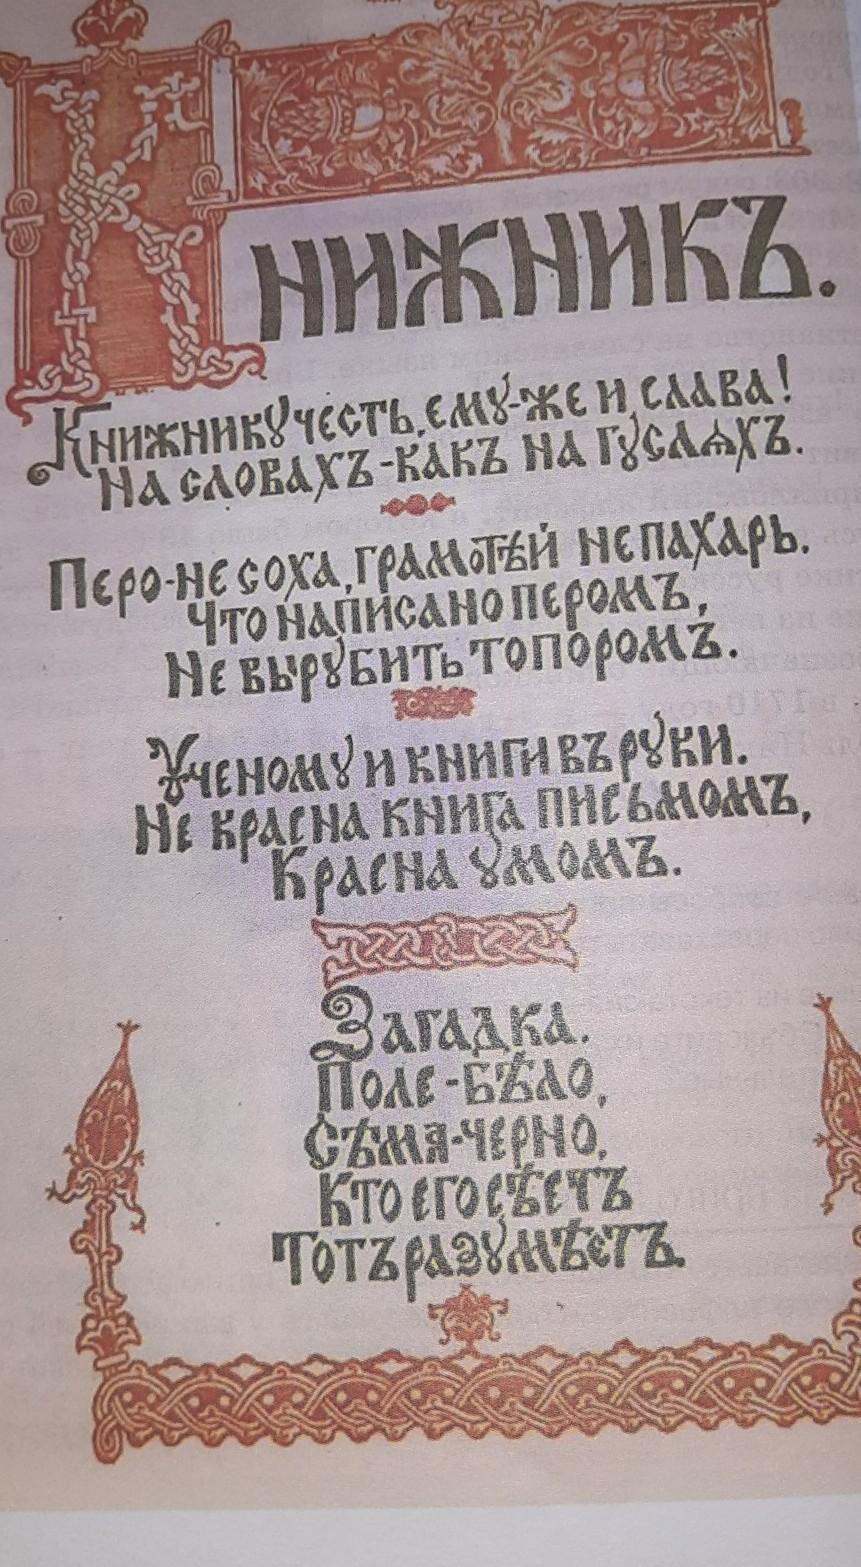 Книжникъ.
Книжнику честь, ему-же и слава!
На словахъ-какъ на гуслѧхъ.
Перо-не соха, грамотѣй не пахарь.
Что написано перомъ,
Не вырубить топоромъ.
Ученому и книги въ руки.
Не красна книга письмомъ,
Красна умомъ.
Загадка.
Поле-бѣло,
Сѣмя-черно,
Кто его сѣетъ
Тотъ разумѣетъ.